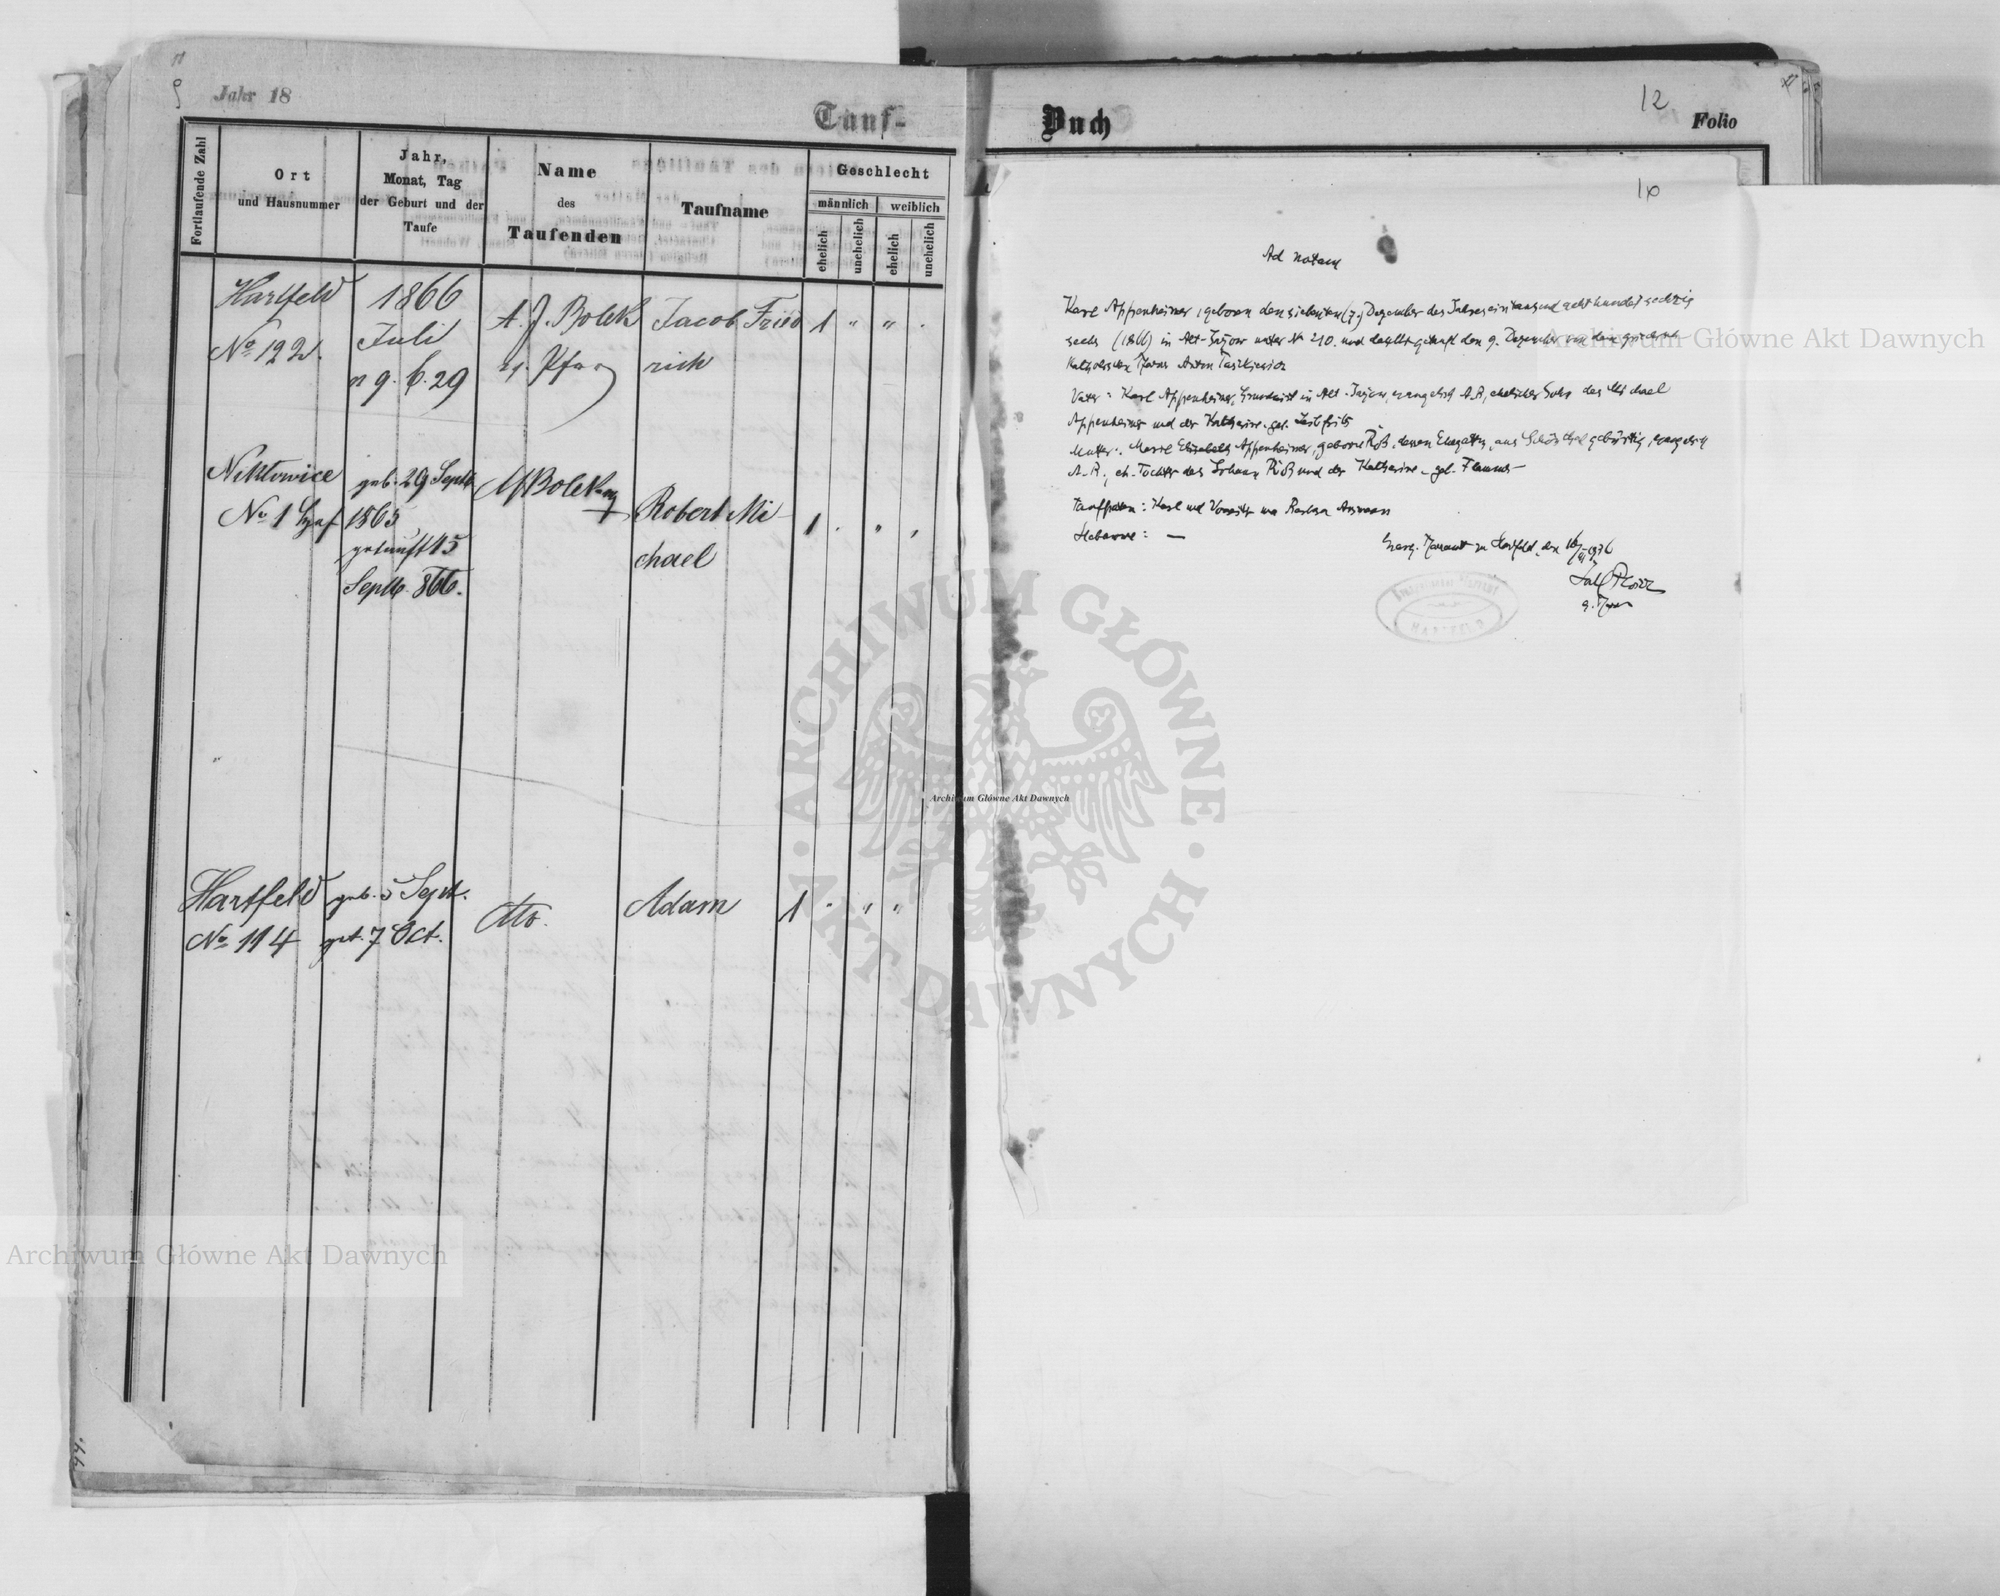 Jahr 18
Tauf-
Fortlaufende Zahl
Ort
und Hausnummer
Jahr,
Monat, Tag
der Geburt und der
Taufe
Name
des
Taufenden
Taufname
Geschlecht
männlich
weiblich
ehelich
unehelich
ehelich
unehelich
Hartfeld
No 122.
1866
Juli
9. 29
A. J. Bolek
Jacob Fried
rich
1
No 1
geb. 29 Septb
1865
getauft 15
Septb. 866.
Bolek
Robert Mi
chael
1
Hartfeld
No 114
geb. 5 Sept.
get. 7 Oct.
dto.
Adam
1
Buch
12
Folio
10
Ad notam
Karl Appenheimer, geboren den siebenten (7.) Dezember des Jahres eintausend acht hundert sechzig
sechs (1866) in Alt-Jażow unter N 210. und daselbst getauft den 9. Dezember von dem
Katholischen Pfarrer Anton
Vater: Karl Appenheimer, Grundwirt in Alt-Jażow, evangelisch A.B., ehelicher Sohn des Michael
Appenheimer und der Katharina geb.
Mutter: Elisabeth Appenheimer, geborne Röß, dessen Ehegattin, aus gebürtig, evangelisch
A.B., eh. Tochter des Johann Röß und der Katharina geb.
Taufpaten: Karl und
Hebamme: —
Evang. Pfarramt zu Hartfeld, den
HARTFELD
Archiwum Główne Akt Dawnych
ARCHIWUM GŁÓWNE AKT DAWNYCH
Archiwum Główne Akt Dawnych
Archiwum Główne Akt Dawnych